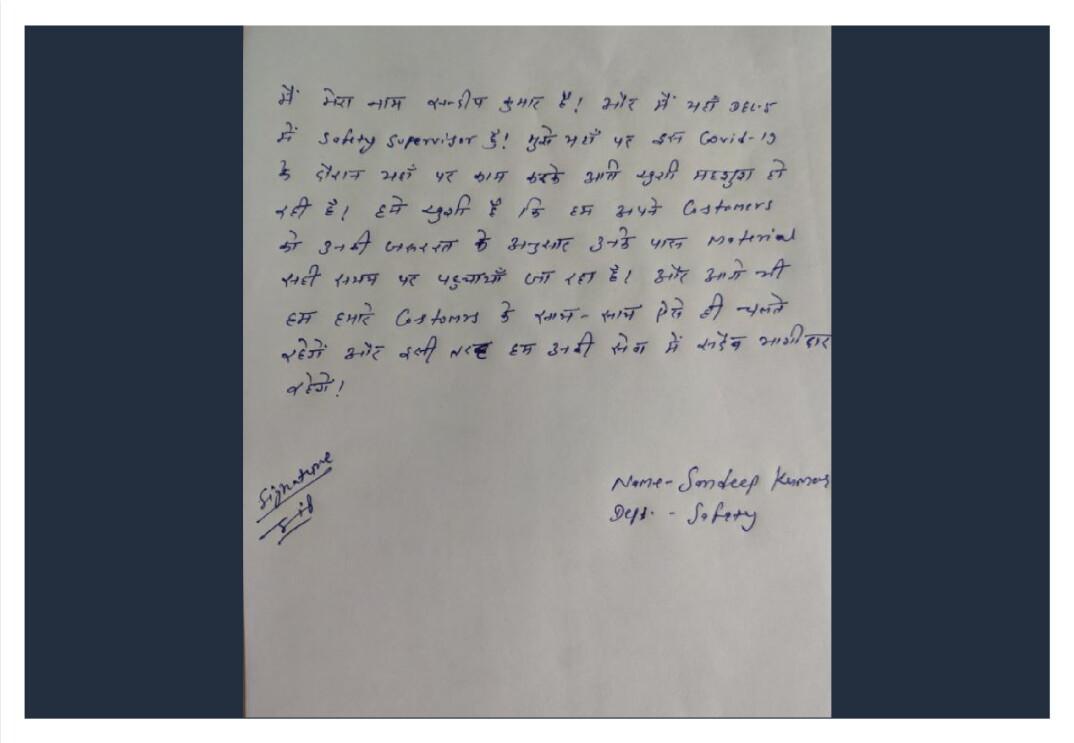 मैं मेरा नाम सन्दीप कुमार है! और मैं यहाँ DEL-5
में Safety Supervisor हूँ! मुझे यहाँ पर इस Covid-19
के दौरान यहाँ पर काम करके अति खुशी महशुश हो
रही है! हमे खुशी है कि हम अपने Costomers
को उनकी जरूरत के अनुसार उनके पास Material
सही समय पर पहुचायाँ जा रहा है! और आगे भी
हम हमारे Costomers के साथ-साथ ऐसे ही चलते
रहेगें और इसी तरह हम उनकी सेवा में सदैव भागीदार
रहेगें!
Signature
Name- Sandeep Kumar
Dept. - Safety